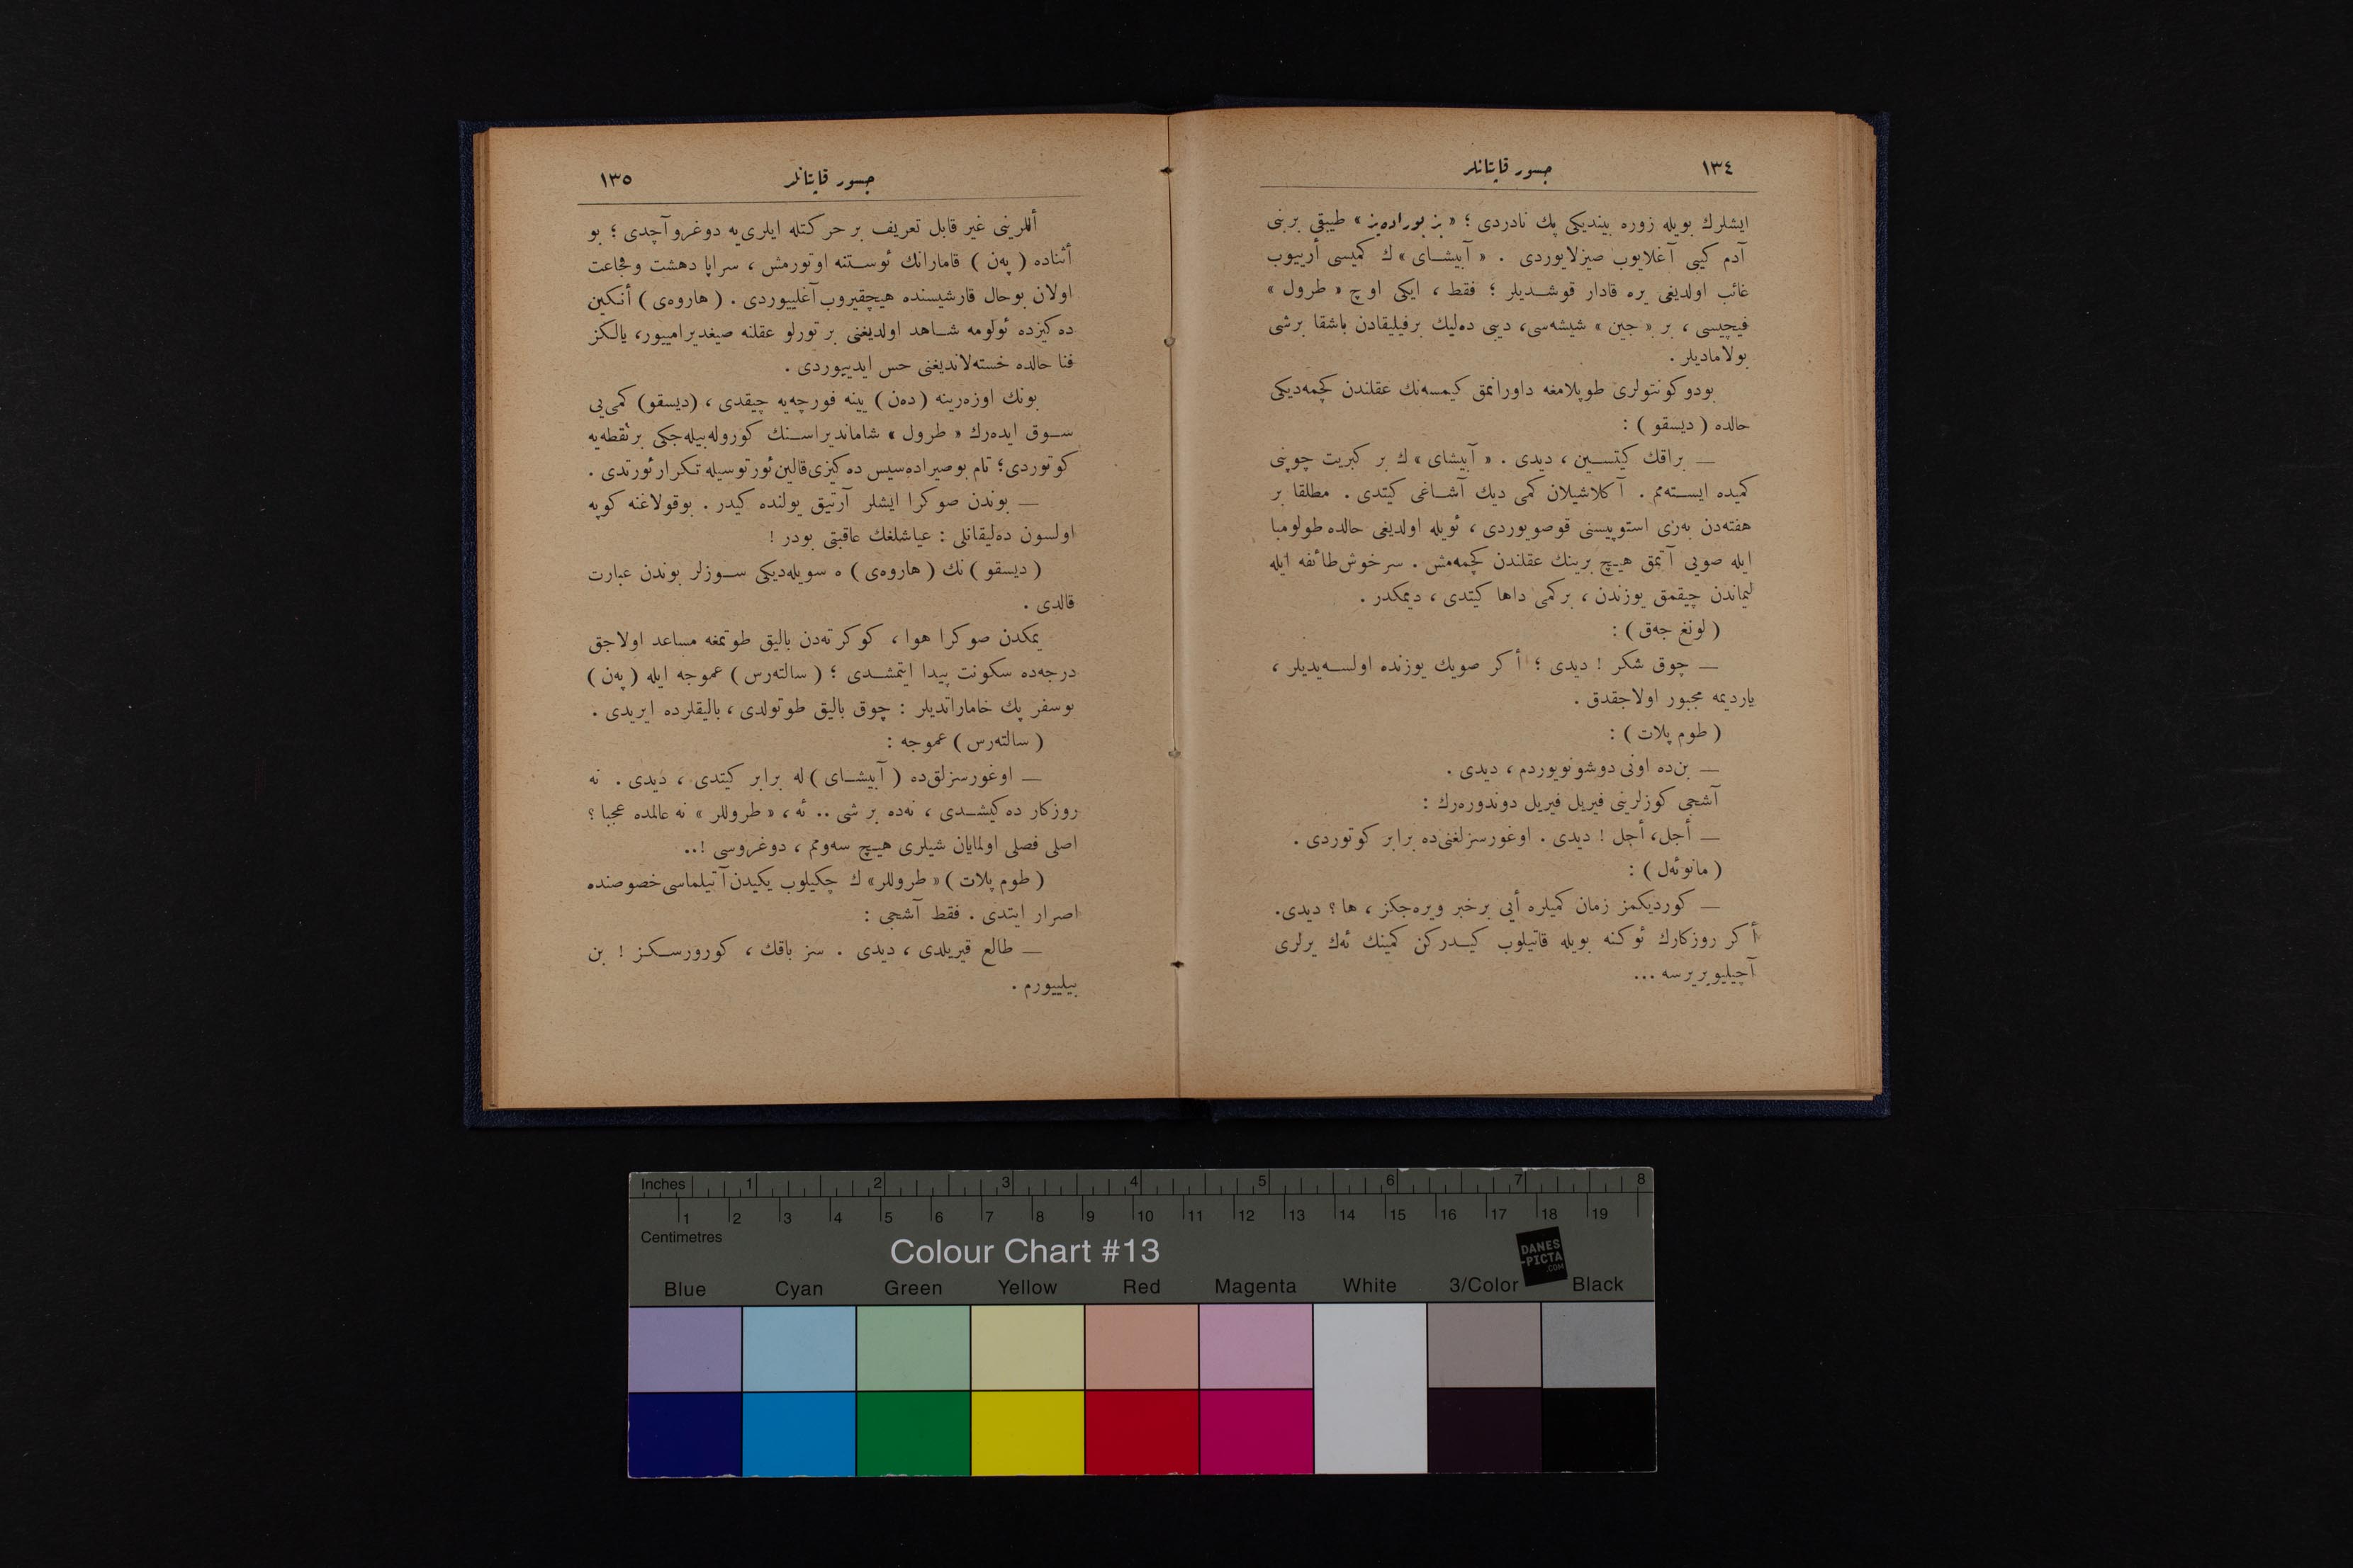 ١٣٤
جسور قاپتانلر
ایشلرك بویله زوره بیندیكی پك نادردی ؛ « بز بوراده‌یز » طیبقی بر بنی
آدم كیبی آغلایوب صیزلایوردی . « آبیشای » ك كمیسی أرییوب
غائب اولدیغی یره قادار قوشدیلر ؛ فقط ، ایكی اوچ « طرول »
فیچیسی ، بر « جین » شیشه‌سی، دیبی ده‌لیك بر فیلیقادن باشقا بر شی
بولامادیلر .
بودو كونتولری طوپلامغه داورانمق كیمسه‌نك عقلندن كچمه‌دیكی
حالده ( دیسقو ) :
— براقك كیتسین ، دیدی . « آبیشای » ك بر كبریت چوپنی
كمیده ایسته‌مم . آكلاشیلان كمی دیك آشاغی كیتدی . مطلقا بر
هفته‌دن به‌ری استوپیسنی قوصویوردی ، ئویله اولدیغی حالده طولومبا
ایله صویی آتمق هیچ برینك عقلندن كچمه‌مش . سرخوش طائفه ایله
لیماندن چیقمق یوزندن ، بر كمی داها كیتدی ، دیمكدر .
( لونغ جه‌ق ) :
— چوق شكر ! دیدی ؛ أكر صویك یوزنده اولسه‌یدیلر ،
یاردیمه مجبور اولاجقدق .
( طوم پلات ) :
— بن‌ده اونی دوشونویوردم ، دیدی .
آشجی كوزلرینی فیریل فیریل دوندوره‌رك :
— أجل، أجل ! دیدی . اوغورسزلغنی‌ده برابر كوتوردی .
( مانوئه‌ل ) :
— كوردیكمز زمان كمیلره أیی بر خبر ویره‌جكز ، ها ؟ دیدی.
أكر روزكارك ئوكنه بویله قاتیلوب كیدركن كمینك ئه‌ك یرلری
آچیلیویریرسه ...
جسور قاپتانلر
١٣٥
أللرینی غیر قابل تعریف بر حركتله ایلری‌یه دوغرو آچدی ؛ بو
أثناده ( په‌ن ) قامارانك ئوستنه اوتورمش ، سراپا دهشت و فجاعت
اولان بو حال قارشیسنده هیچقیروب آغلییوردی . ( هاروه‌ی ) أنكین
ده‌كیزده ئولومه شاهد اولدیغنی بر تورلو عقلنه صیغدیرامییور، یالكز
فنا حالده خسته‌لاندیغنی حس ایدییوردی .
بونك اوزه‌رینه ( ده‌ن ) یینه فورچه‌یه چیقدی ، ( دیسقو ) كمی‌یی
سوق ایده‌رك « طرول » شاماندیراسنك كوروله‌بیله‌جكی بر نقطه‌یه
كوتوردی؛ تام بو صیراده سیس ده‌كیزی قالین ئورتوسیله تكرار ئورتدی .
— بوندن صوكرا ایشلر آرتیق یولنده كیدر . بو قولاغنه كوپه
اولسون ده‌لیقانلی : عیاشلغك عاقبتی بودر !
( دیسقو ) نك ( هاروه‌ی ) ه سویله‌دیكی سوزلر بوندن عبارت
قالدی .
یمكدن صوكرا هوا ، كوكرته‌دن بالیق طوتمغه مساعد اولاجق
درجه‌ده سكونت پیدا ایتمشدی ؛ ( سالته‌رس ) عموجه ایله ( په‌ن )
بو سفر پك خاماراتدیلر : چوق بالیق طوتولدی ، بالیقلرده ایریدی .
( سالته‌رس ) عموجه :
— اوغورسزلق‌ده ( آبیشای ) له برابر كیتدی ، دیدی . نه
روزكار ده‌كیشدی ، نه‌ده بر شی .. ئه ، « طروللر » نه عالمده عجبا ؟
اصلی فصلی اولمایان شیلری هیچ سه‌ومم ، دوغروسی !..
( طوم پلات ) « طروللر » ك چكیلوب یكیدن آتیلماسی خصوصنده
اصرار ایتدی . فقط آشجی :
— طالع قیریلدی ، دیدی . سز باقك ، كورورسكز ! بن
بیلییورم .
Inches 1 2 3 4 5 6 7 8
1 2 3 4 5 6 7 8 9 10 11 12 13 14 15 16 17 18 19
Centimetres
Colour Chart #13
DANES
-PICTA
.COM
Blue Cyan Green Yellow Red Magenta White 3/Color Black